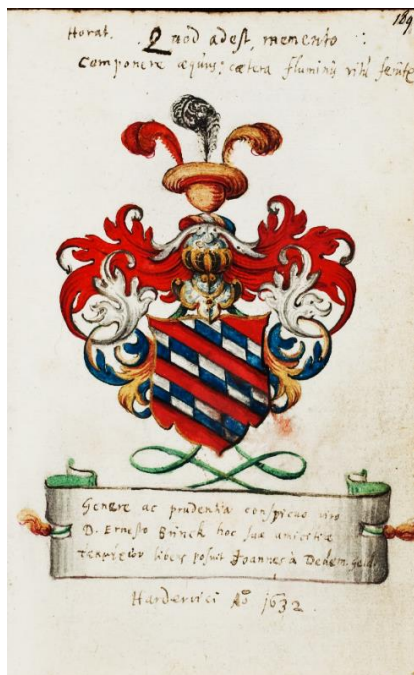 189
Horat. Quod adest, memento
Componere æquus; cætera fluminis ritu ferūtꝛ
Genere ac prudentia conspicuo viro
D. Ernesto Brinck hoc suæ amicitiæ
τεκμήριον libens posuit Joannes à Dedem
Hardervici Aō 1632.